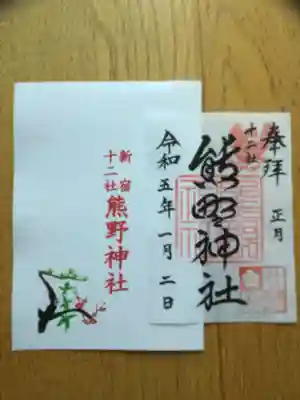 新宿
十二社
熊野神社
奉拝
正月
十二社
熊野神社
令和五年一月二日